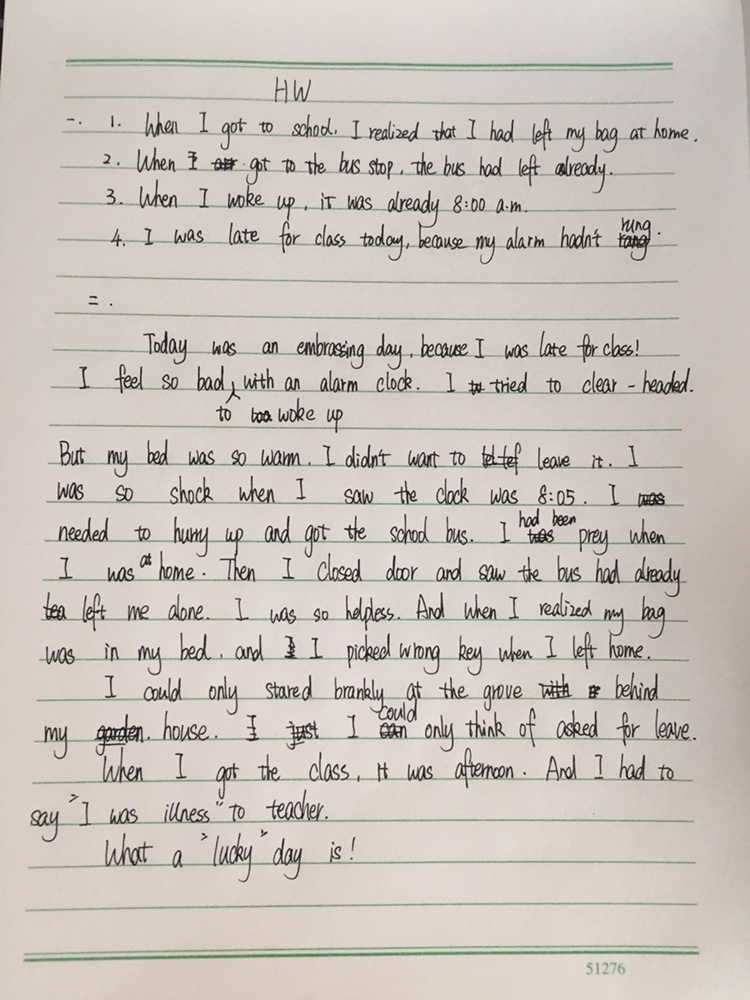 HW
一. 1. When I got to school. I realized that I had left my bag at home.
2. When I got to the bus stop, the bus had left already.
3. When I woke up, it was already 8:00 a.m.
4. I was late for class today, because my alarm hadn't rung.
二.
Today was an embrassing day, because I was late for class!
I feel so bad to woke up with an alarm clock. I tried to clear-headed.
But my bed was so warm. I didn't want to leave it. I
was so shock when I saw the clock was 8:05. I
needed to hurry up and got the school bus. I had been prey when
I was at home. Then I closed door and saw the bus had already
left me alone. I was so helpless. And when I realized my bag
was in my bed, and I picked wrong key when I left home.
I could only stared brankly at the grove behind
my house. I could only think of asked for leave.
When I got the class, it was afternoon. And I had to
say "I was illness" to teacher.
What a "lucky" day is!
51276